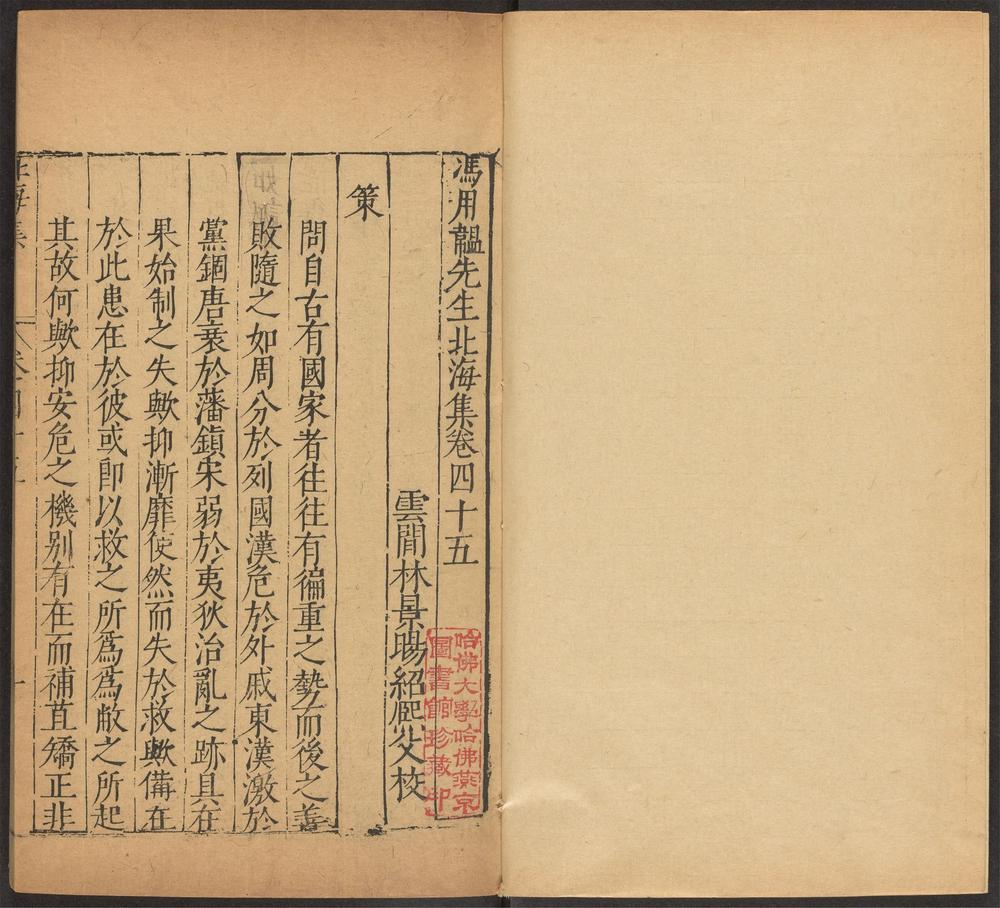 馮用韞先生北海集卷四十五
雲間林景暘紹熙父校
策
問自古有國家者往往有徧重之勢而後之善
敗隨之如周分於列國漢危於外戚東漢激於
黨錮唐衰於藩鎮宋弱於夷狄治亂之跡具在
果始制之失歟抑漸靡使然而失於救歟備在
於此患在於彼或卽以救之所爲爲敝之所起
其故何歟抑安危之機別有在而補苴矯正非
北海集 卷四十五 一
哈佛大學哈佛燕京
圖書館珍藏印